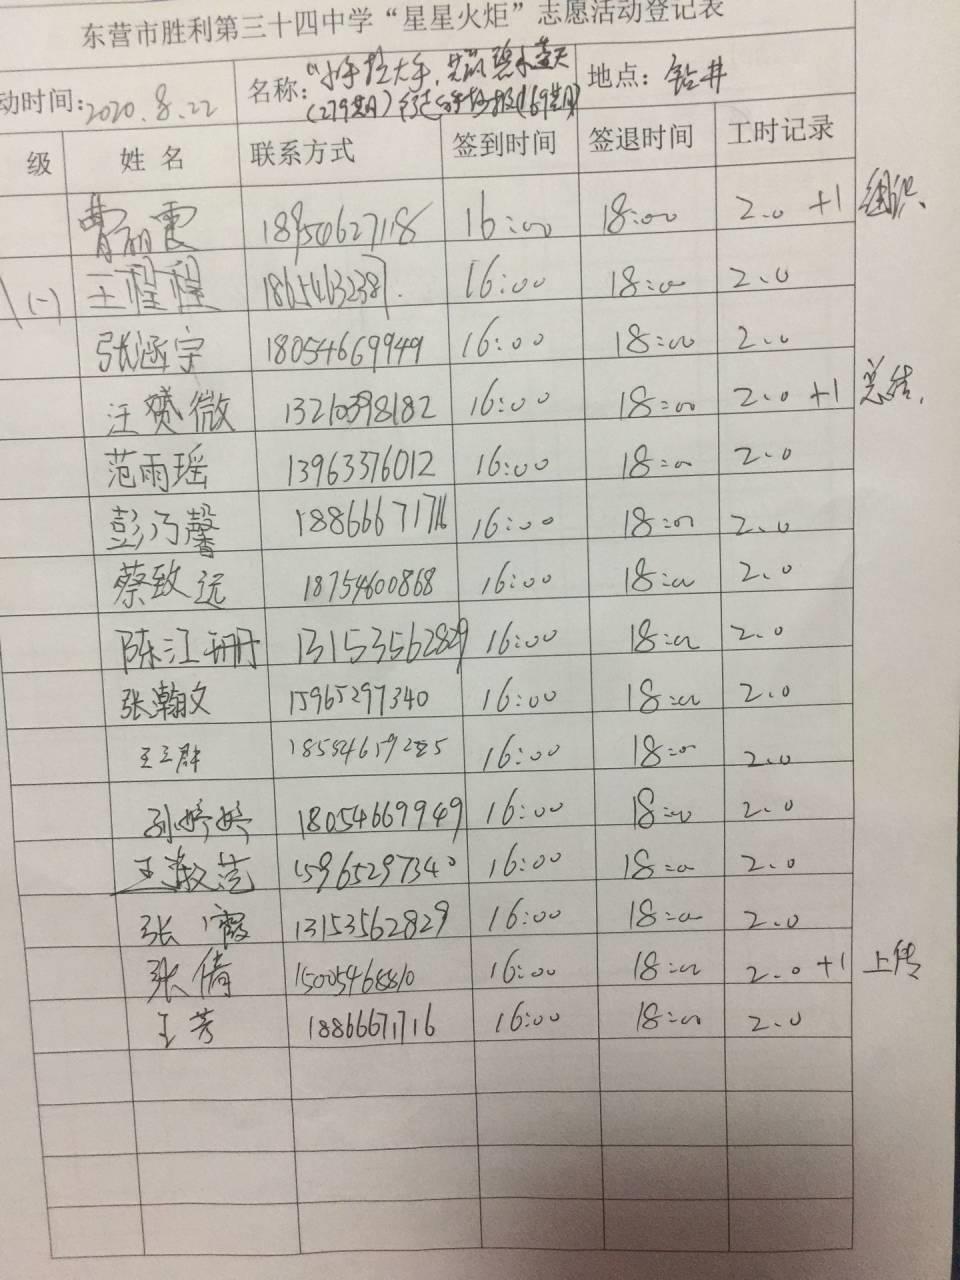 东营市胜利第三十四中学“星星火炬”志愿活动登记表
动时间: 2020.8.22 名称: “小手拉大手,共筑碧水蓝天 地点: 钻井
(279期)
级 姓名 联系方式 签到时间 签退时间 工时记录
曹丽霞 18954627118 16:00 18:00 2.0 +1 组织.
(一) 王程程 18654632387. 16:00 18:00 2.0
张涵宇 18054669949 16:00 18:00 2.0
汪赟微 13210398182 16:00 18:00 2.0 +1 总结.
范雨瑶 13963376012 16:00 18:00 2.0
彭乃馨 18866671716 16:00 18:00 2.0
蔡致远 18754600868 16:00 18:00 2.0
陈江珊 13153562829 16:00 18:00 2.0
张瀚文 15965297340 16:00 18:00 2.0
王立群 16:00 18:00 2.0
孙婷婷 18054669949 16:00 18:00 2.0
王淑范 15965297340 16:00 18:00 2.0
张霞 13153562829 16:00 18:00 2.0
张倩 15005468810 16:00 18:00 2.0 +1 上传
王芳 18866671716 16:00 18:00 2.0